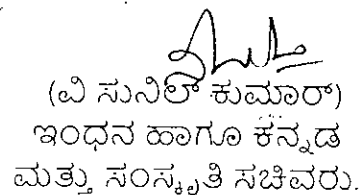 (ವಿ ಸುನಿಲ್ ಕುಮಾರ್)
ಇಂಧನ ಹಾಗೂ ಕನ್ನಡ
ಮತ್ತು ಸಂಸ್ಕೃತಿ ಸಚಿವರು.